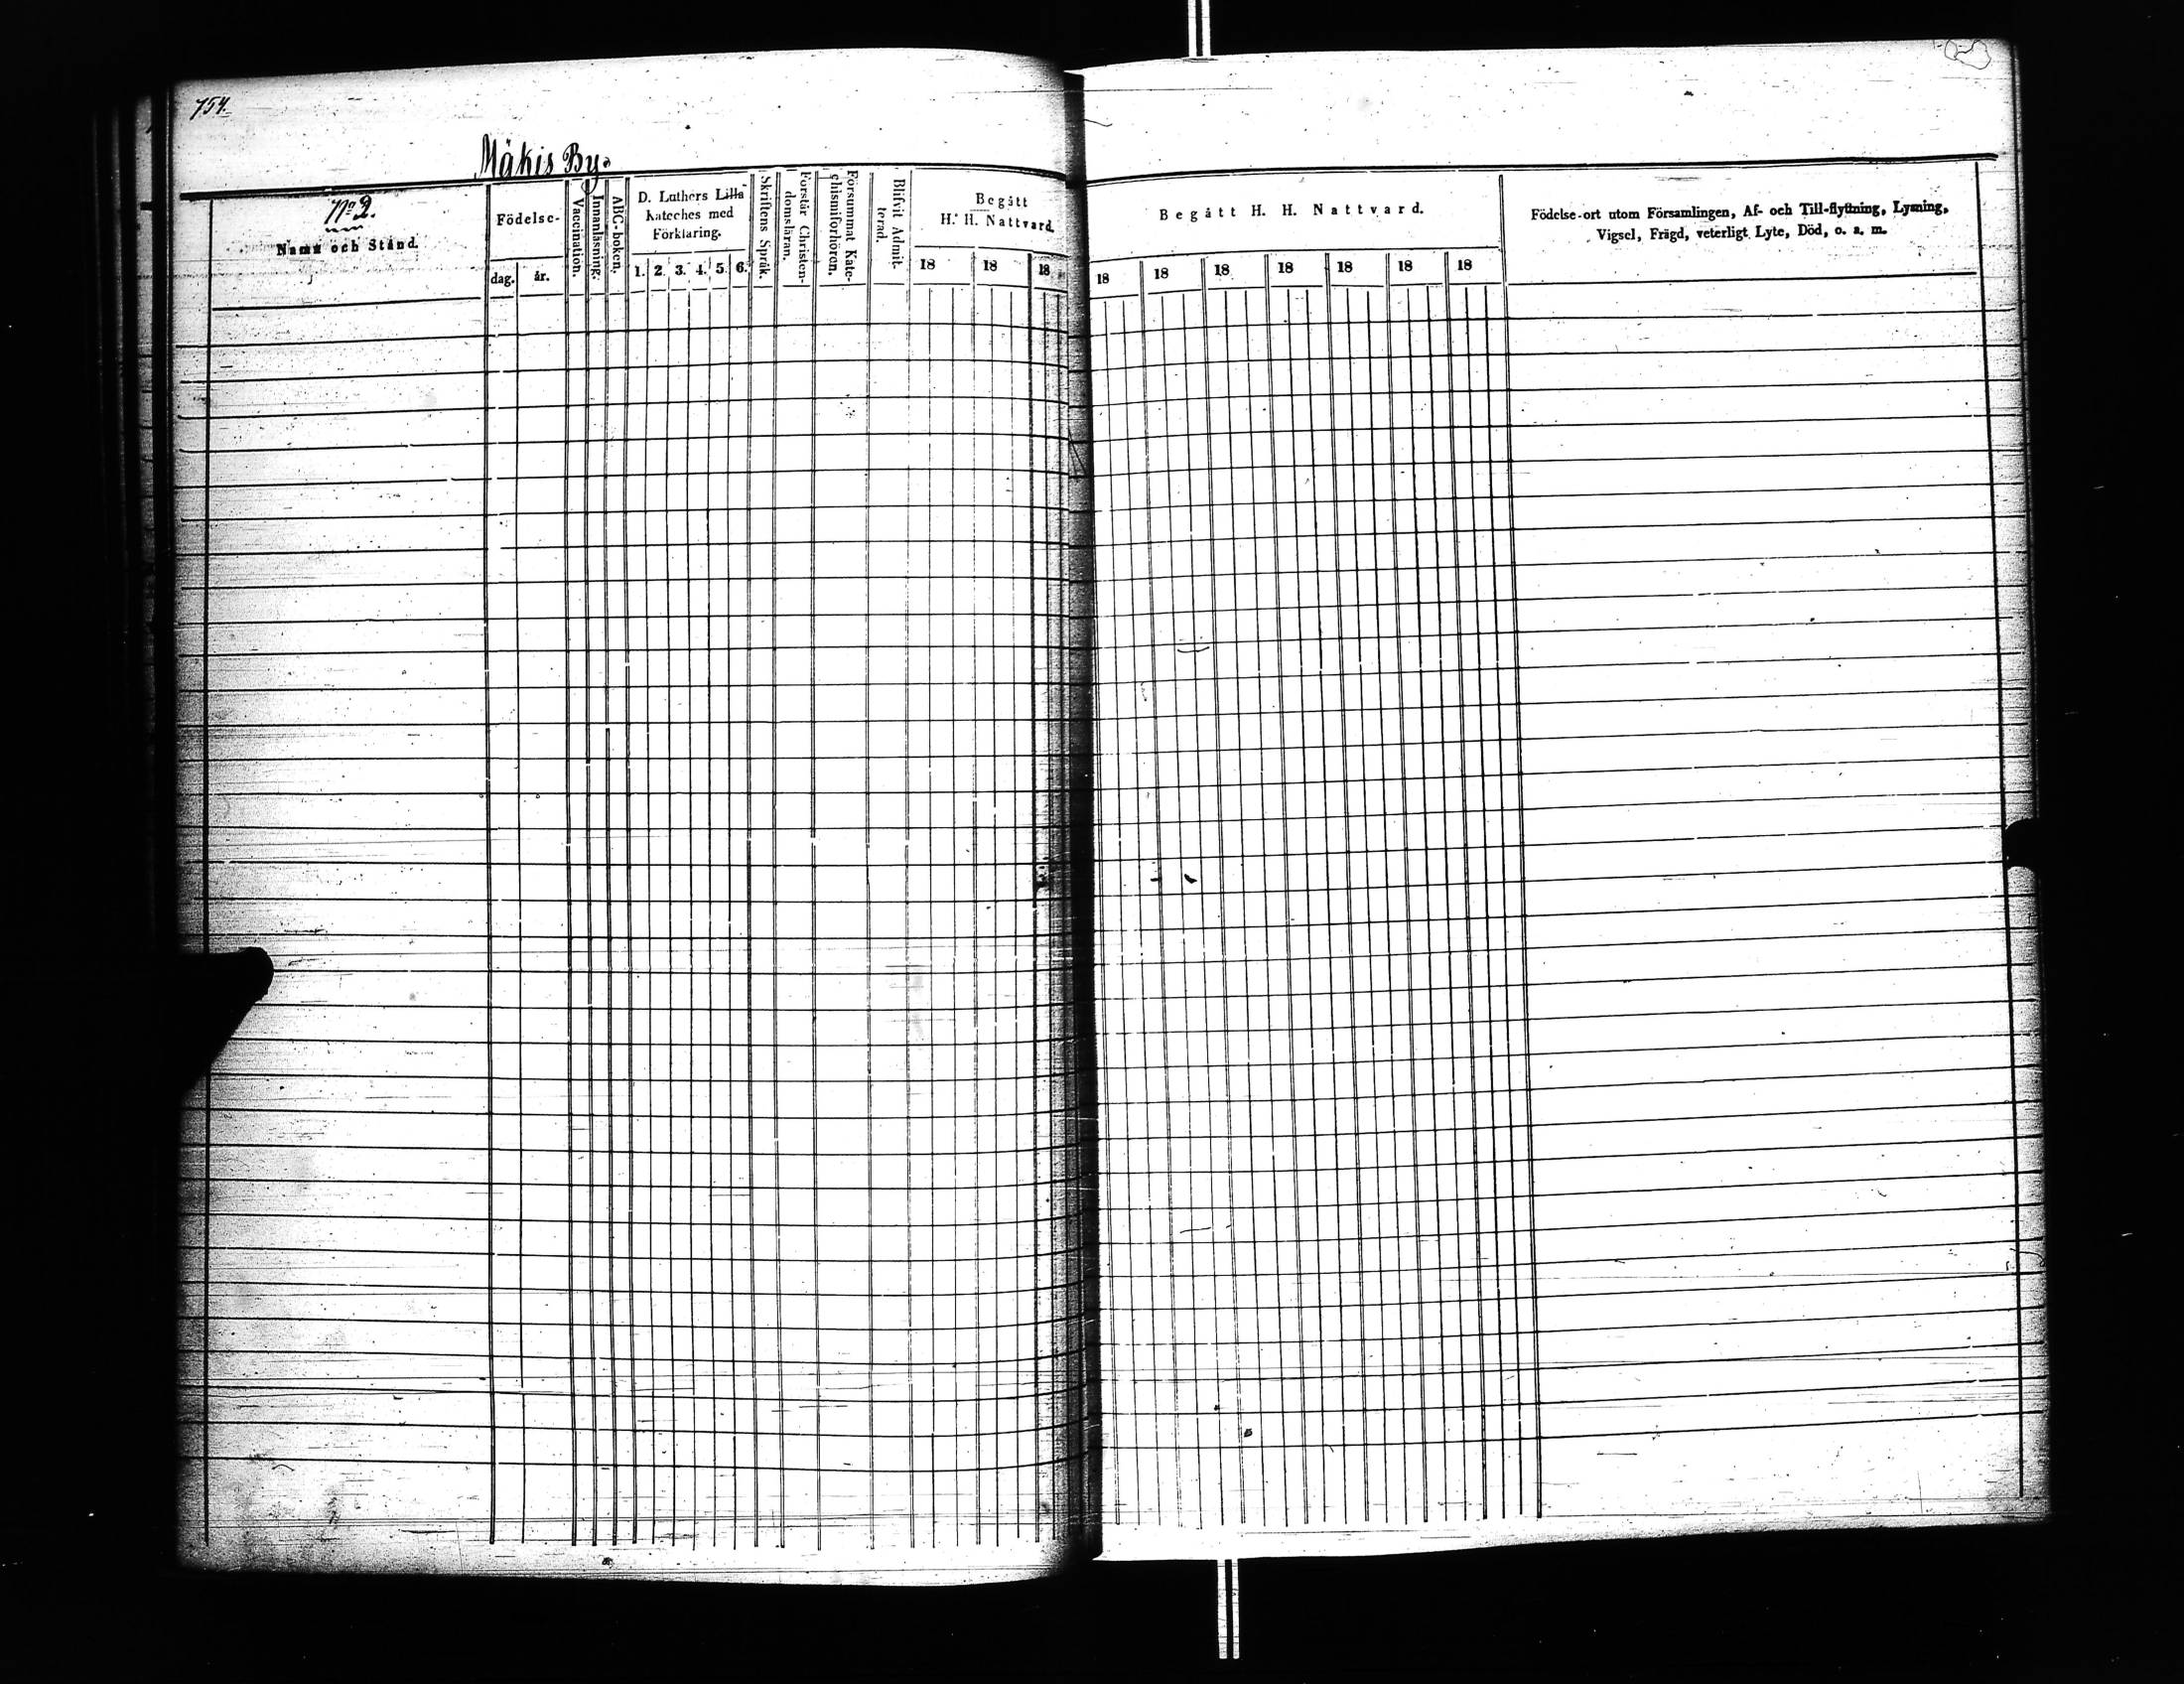 754.
Mäkis By.
No 2.
Namn och Stånd.
Födelse-
dag.
år.
Vaccination.
Innanläsning.
ABC-boken.
D. Luthers Lilla
Kateches med
Förklaring.
1. 2. 3. 4. 5. 6.
Skriftens Språk.
Förstår Christen-
domsläran.
Försummat Kate-
chismiförhören.
Blifvit Admit-
terad.
Begått
H. H. Nattvard.
18 18 18
Begått H. H. Nattvard.
18 18 18 18 18 18 18
Födelse-ort utom Församlingen, Af- och Till-flyttning, Lysning,
Vigsel, Frägd, veterligt Lyte, Död, o. s. m.